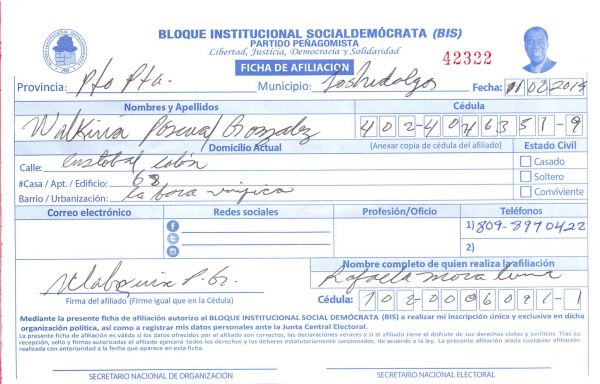 BLOQUE INSTITUCIONAL SOCIALDEMÓCRATA (BIS)
PARTIDO PEÑAGOMISTA
Libertad, Justicia, Democracia y Solidaridad
42322
FICHA DE AFILIACIÓN
Provincia: Pto Pta. Municipio: Los hidalgos Fecha: 11/02/2019
Nombres y Apellidos Cédula
Walkiria Pascual Gonzalez 402-4046351-9
Domicilio Actual (Anexar copia de cédula del afiliado) Estado Civil
Calle: Cristobal colón Casado
#Casa / Apt. / Edificio: 68 Soltero
Barrio / Urbanización: la Conviviente
Correo electrónico Redes sociales Profesión/Oficio Teléfonos
1) 809-8970422
2)
Nombre completo de quien realiza la afiliación
Rafaela Mora
Firma del afiliado (Firme igual que en la Cédula) Cédula: 102-0006091-1
Mediante la presente ficha de afiliación autorizo al BLOQUE INSTITUCIONAL SOCIAL DEMÓCRATA (BIS) a realizar mi inscripción único y exclusiva en dicha
organización política, así como a registrar mis datos personales ante la Junta Central Electoral.
La presente ficha de afiliación es válida si los datos ofrecidos por el afiliado son correctos, las declaraciones veraces y si el afiliado tiene el disfrute de sus derechos civiles y políticos. Tras su
recepción, sello y firmas autorizadas el afiliado ejercerá todos los derechos y los deberes estatutariamente sancionados, de acuerdo a la ley. La presente afiliación anula cualquier afiliación
realizada con anterioridad a la fecha que aparece en esta ficha.
SECRETARIO NACIONAL DE ORGANIZACIÓN SECRETARIO NACIONAL ELECTORAL